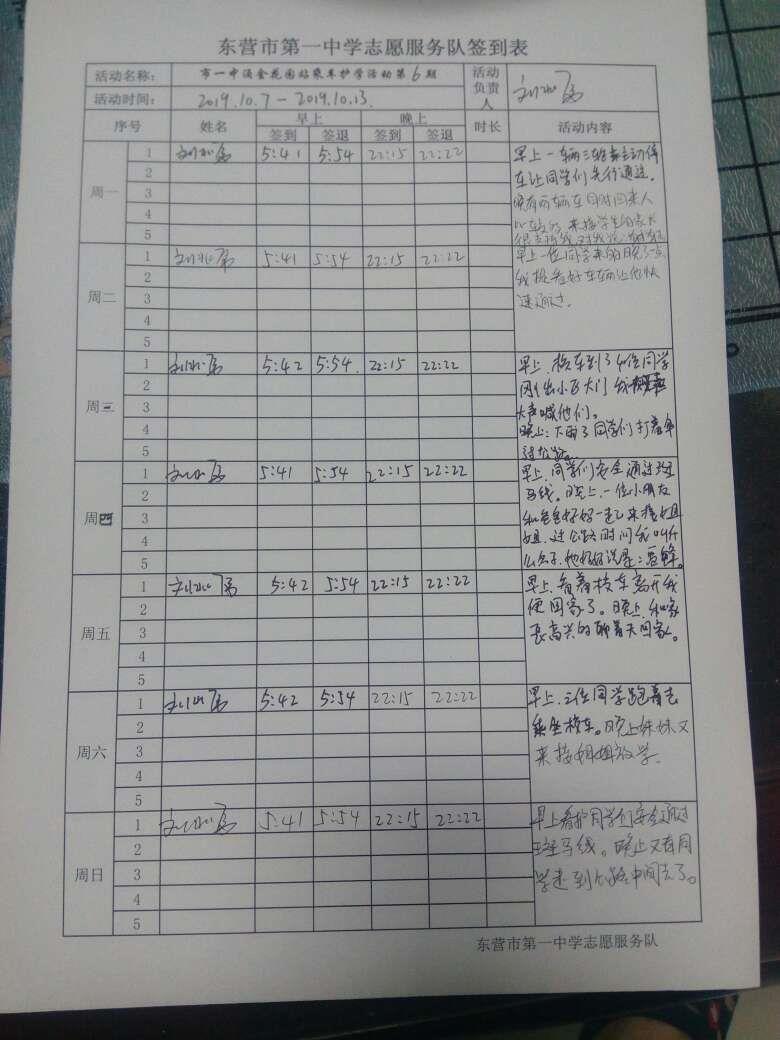 东营市第一中学志愿服务队签到表
活动名称： 市一中汲金花园站乘车护学活动第6期 活动负责人
活动时间： 2019.10.7－2019.10.13.
序号 姓名 早上 晚上 时长 活动内容
签到 签退 签到 签退
周一 1 5:41 5:54 22:15 22:22 早上一辆三轮车主动停
2 车让同学们先行通过。
3 晚有两辆车同时间来人
4
5
周二 1 5:41 5:54 22:15 22:22 早上一位同学来的晚了一点
2 我提看好车辆让他快
3 速通过。
4
5
周三 1 5:42 5:54. 22:15 22:22 早上，校车到了如位同学
2 刚出小区大门我
3 大声喊他们。
4 晚上：下雨了同学们打着伞
5 过公路。
周四 1 5:41 5:54 22:15 22:22 早上，同学们安全通过斑
2 马线。晚上，一位小朋友
3 和爸爸好好一起来接姐
4 姐，过公路时问我叫什
5
周五 1 5:42 5:54 22:15 22:22 早上，看着校车离开我
2 便回家了。晚上，和家
3 长高兴的聊着天回家。
4
5
周六 1 5:42 5:54 22:15 22:22 早上，三位同学跑着去
2 乘坐校车。晚上妹妹又
3 来接姐姐放学。
4
5
周日 1 5:41 5:54 22:15 22:22 早上看护同学们安全通过
2 斑马线。晚上又有同
3 学走到公路中间去了。
4
5
东营市第一中学志愿服务队